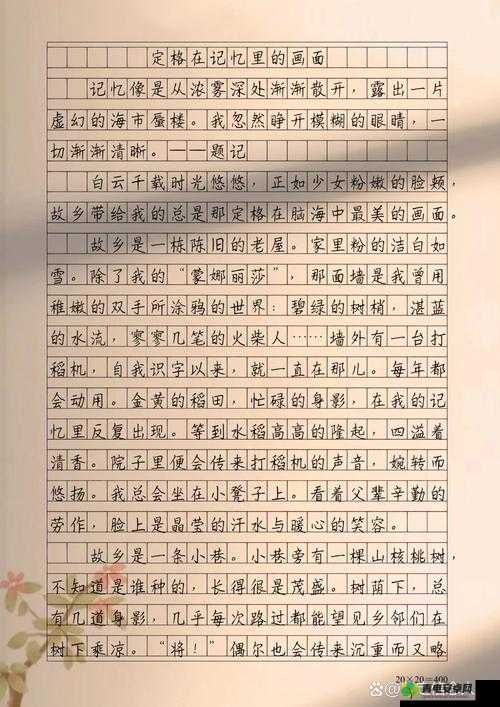 定格在记忆里的画面
记忆像是从浓雾深处渐渐散开，露出一片
虚幻的海市蜃楼。我忽然睁开模糊的眼睛，一
切渐渐清晰。——题记
白云千载时光悠悠，正如少女粉嫩的脸颊，
故乡带给我的总是那定格在脑海中最美的画面。
故乡是一栋陈旧的老屋。家里粉的洁白如
雪。除了我的“蒙娜丽莎”，那面墙是我曾用
稚嫩的双手所涂鸦的世界：碧绿的树梢，湛蓝
的水流，寥寥几笔的火柴人……墙外有一台打
稻机，自我识字以来，就一直在那儿。每年都
会动用。金黄的稻田，忙碌的身影，在我的记
忆里反复出现。等到水稻高高的隆起，四溢着
清香。院子里便会传来打稻机的声音，婉转而
悠扬。我总会坐在小凳子上。看着父辈辛勤的
劳作，脸上是晶莹的汗水与暖心的笑容。
故乡是一条小巷。小巷旁有一棵山核桃树，
不知道是谁种的，长得很是茂盛。树荫下，总
有几道身影，几乎每次路过都能望见乡邻们在
树下乘凉。“将！”偶尔也会传来沉重而又略
20×20=400